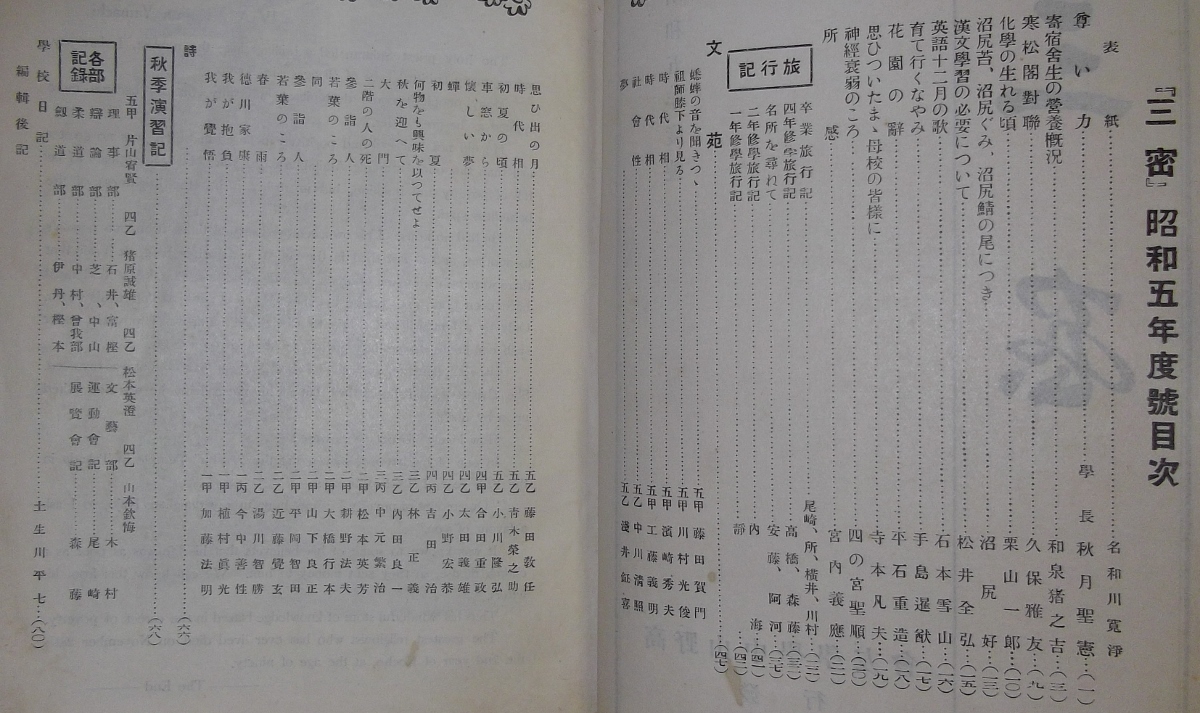 『三密』昭和五年度號目次
表紙 名和川寬淨
尊い力 學長 秋月聖憲(一)
寄宿舍生の營養槪況 和泉猪之吉(三)
寒松閣對聯 久保雅友(九)
化學の生れる頃 栗山一郎(一〇)
沼尻苔、沼尻ぐみ、沼尻鯖の尾につき 沼尻好(一三)
漢文學習の必要について 松井全弘(一五)
英語十二月の歌 石本雪山(一六)
育て行くなやみ 手島暹猷(一七)
花園の辭 平石重造(一八)
思ひついたまゝ母校の皆樣に 寺本凡夫(一九)
神經衰弱のころ 四の宮聖順(二〇)
所感 宮内義應(二一)
旅行記
卒業旅行記 尾崎、所、横井、川村(二二)
四年修學旅行記 高橋、森藤(三二)
名所を尋れて 安藤、阿河(三七)
二年修學旅行記 内海(四一)
一年修學旅行記 靜(四二)
文苑 (四七)
蟋蟀の音を聞きつゝ 五甲 藤田賀門
祖師膝下より見る 五甲 川村光俊
時代相 五甲 濱崎秀夫
時代相 五甲 工藤義明
社會性 五乙 中川淸照
夢 五乙 淺井鉦喜
思ひ出の月 五乙 藤田敎任
時代相 五乙 靑木榮之助
初夏の頃 五乙 小川隆弘
車窓から 四甲 合田重政
懷しい夢 四乙 太田義雄
蟬 四乙 小野宏恭
初夏 四丙 吉田治
何物をも興味を以つてせよ 三乙 林正義
秋を迎へて 三乙 内田良一
大門 三丙 中元繁治
二階の人の死 二甲 松本英芳
參詣人 二甲 新野法夫
若葉のころ 二甲 大橋行本
同 二甲 山下良正
參詣人 二甲 平岡智田
若葉のころ 二乙 近藤覺玄
春雨 二乙 湯川智勝
德川家康 一丙 今中善性
我が抱負 一甲 植村眞光
我が覺悟 一甲 加藤法明
詩 (六六)
秋季演習記 (六八)
五甲 片山宥賢 四乙 猪原誠雄 四乙 松本英澄 四乙 山本欽悔
各部記錄
理事部 石井、富樫
辯論部 芝、中山
柔道部 中村、曾我部
劔道部 伊丹、樫本
文藝部 木村
運動會記 尾崎
展覽會記 森藤
學校日記 土生川平七(八〇)
編輯後記
The End